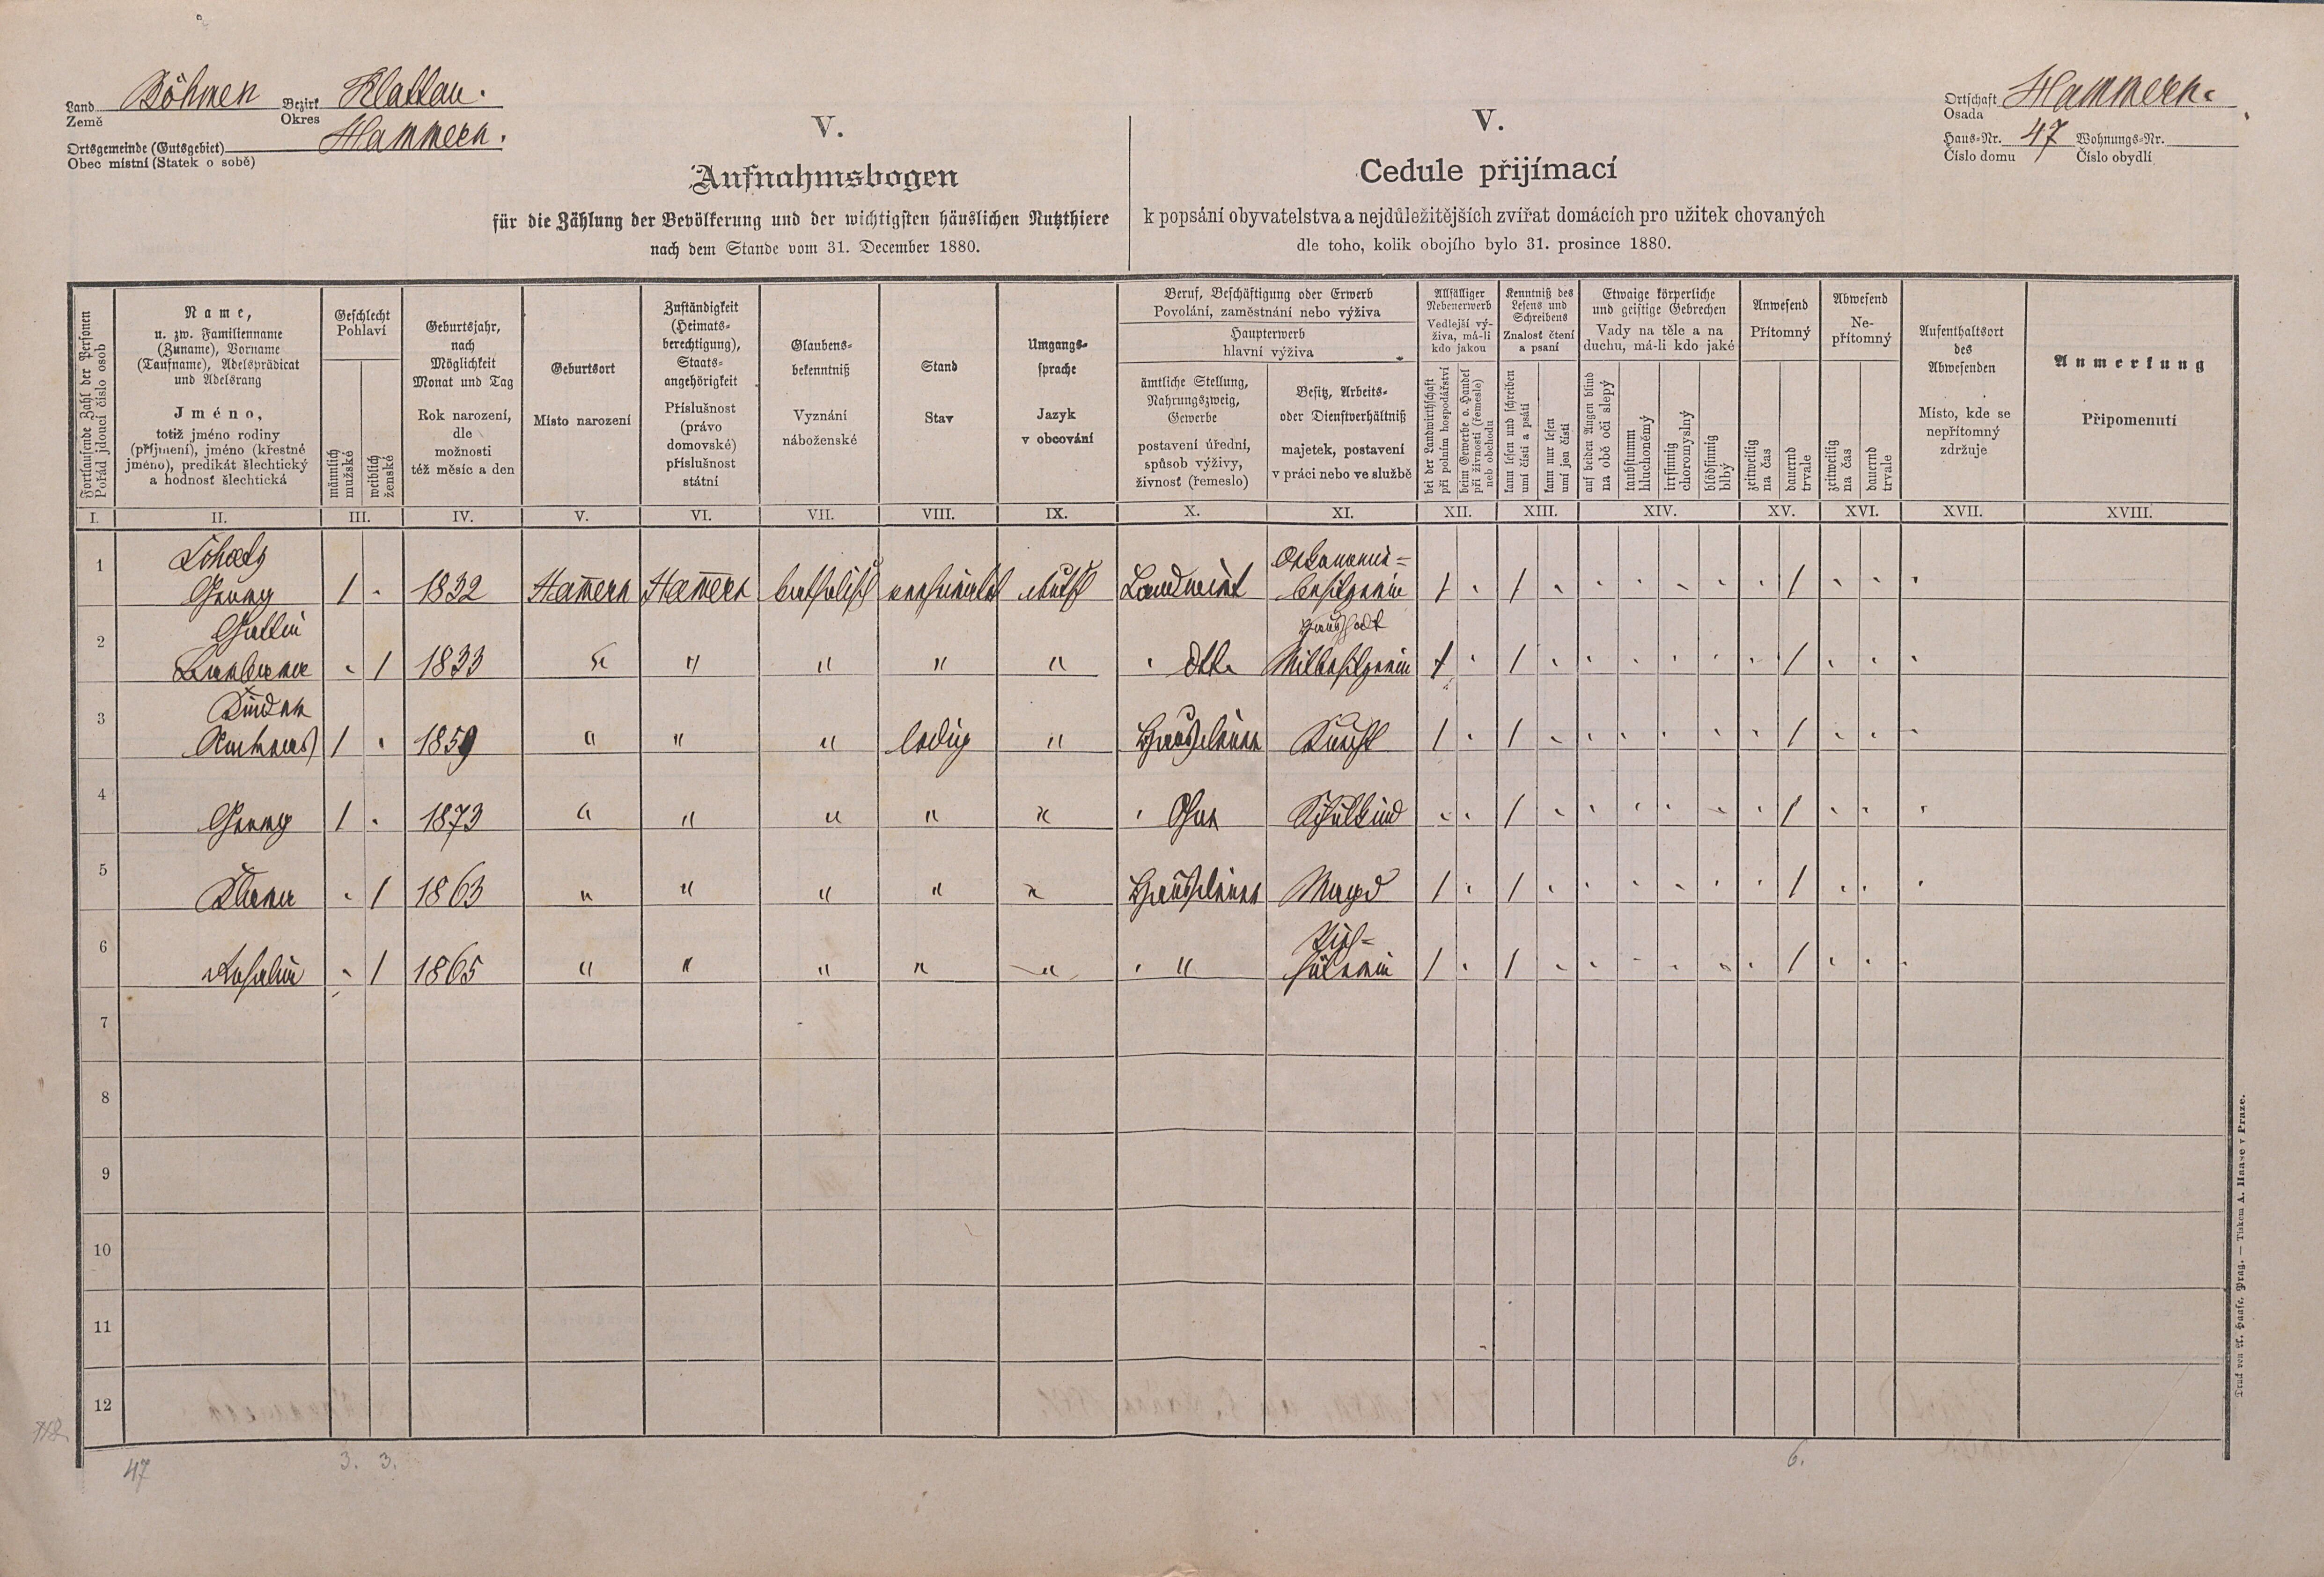 Land Böhmen Bezirk Klattau.
Země Okres
Ortsgemeinde (Gutsgebiet) Hammern.
Obec místní (Statek o sobě)
Ortschaft Hammern.
Osada
Haus-Nr. 47 Wohnungs-Nr.
Číslo domu Číslo obydlí
V.
Aufnahmsbogen
für die Zählung der Bevölkerung und der wichtigsten häuslichen Nutzthiere
nach dem Stande vom 31. December 1880.
V.
Cedule přijímací
k popsání obyvatelstva a nejdůležitějších zvířat domácích pro užitek chovaných
dle toho, kolik obojího bylo 31. prosince 1880.
Fortlaufende Zahl der Personen
Pořád jdoucí číslo osob
Name,
u. zw. Familienname
(Zuname), Vorname
(Taufname), Adelsprädicat
und Adelsrang
Jméno,
totiž jméno rodiny
(příjmení), jméno (křestné
jméno), predikát šlechtický
a hodnosť šlechtická
Geschlecht
Pohlaví
männlich
mužské
weiblich
ženské
Geburtsjahr,
nach
Möglichkeit
Monat und Tag
Rok narození,
dle
možnosti
též měsíc a den
Geburtsort
Místo narození
Zuständigkeit
(Heimats-
berechtigung),
Staats-
angehörigkeit
Příslušnost
(právo
domovské)
příslušnost
státní
Glaubens-
bekenntniß
Vyznání
náboženské
Stand
Stav
Umgangs-
sprache
Jazyk
v obcování
Beruf, Beschäftigung oder Erwerb
Povolání, zaměstnání nebo výživa
Haupterwerb
hlavní výživa
ämtliche Stellung,
Nahrungszweig,
Gewerbe
postavení úřední,
spůsob výživy,
živnosť (řemeslo)
Besitz, Arbeits-
oder Dienstverhältniß
majetek, postavení
v práci nebo ve službě
Allfälliger
Nebenerwerb
Vedlejší vý-
živa, má-li
kdo jakou
bei der Landwirthschaft
při polním hospodářství
beim Gewerbe o. Handel
při živnosti (řemesle)
neb obchodu
Kenntniß des
Lesens und
Schreibens
Znalosť čtení
a psaní
kann lesen und schreiben
umí čísti a psáti
kann nur lesen
umí jen čísti
Etwaige körperliche
und geistige Gebrechen
Vady na těle a na
duchu, má-li kdo jaké
auf beiden Augen blind
na obě oči slepý
taubstumm
hluchoněmý
irrsinnig
choromyslný
blödsinnig
blbý
Anwesend
Přítomný
zeitweilig
na čas
dauernd
trvale
Abwesend
Ne-
přítomný
zeitweilig
na čas
dauernd
trvale
Aufenthaltsort
des
Abwesenden
Místo, kde se
nepřítomný
zdržuje
Anmerkung
Připomenutí
I. II. III. IV. V. VI. VII. VIII. IX. X. XI. XII. XIII. XIV. XV. XVI. XVII. XVIII.
Oekonomie=
1 Georg 1 1832 Ham̄ern Ham̄ern katholisch verheiratet deutsch Landwirt besitzerin 1 1 1
Gattin
2 Barbara 1 1833 " " " " " detto Mitbesitzerin 1 1 1
Kinder
3 1 1859 " " " ledig " Knecht 1 1 1
4 Georg 1 1873 " " " " " Schulkind 1 1
5 1 1863 " " " " " Magd 1 1 1
6 1 1865 " " " " " " 1 1 1
7
8
9
10
11
12
47 3. 3. 6.
Druck von A. Haase, Prag. — Tiskem A. Haase v Praze.